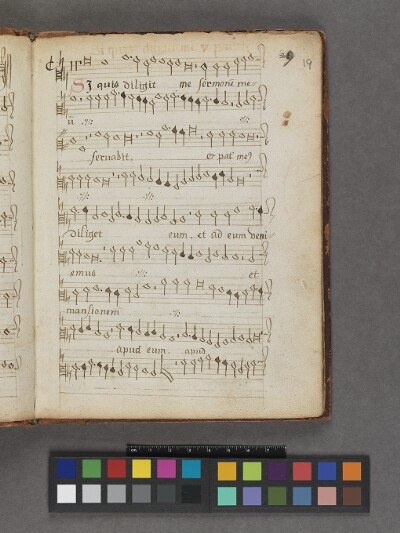 19
Si quis diligit me sermonē me
ū
servabit, et pat' me'
diliget eum, et ad eum veni
emus et
mansionem
apud eum, apud